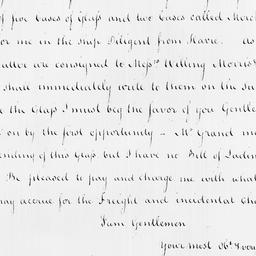 of five Cases of Glass and two Cases called Merch
or me in the ship Diligent from Havre. As
latter are consigned to Messrs Willing Morris &
shall immediately write to them on the Su
the Glass I must beg the favor of you Gentle
on by the first opportunity – Mr Grand me
ending of this Glass but I have no Bill of Ladin
Be pleased to pay and charge me with what
may accrue for the Freight and incidental Cha
I am Gentlemen
Your most Obt &